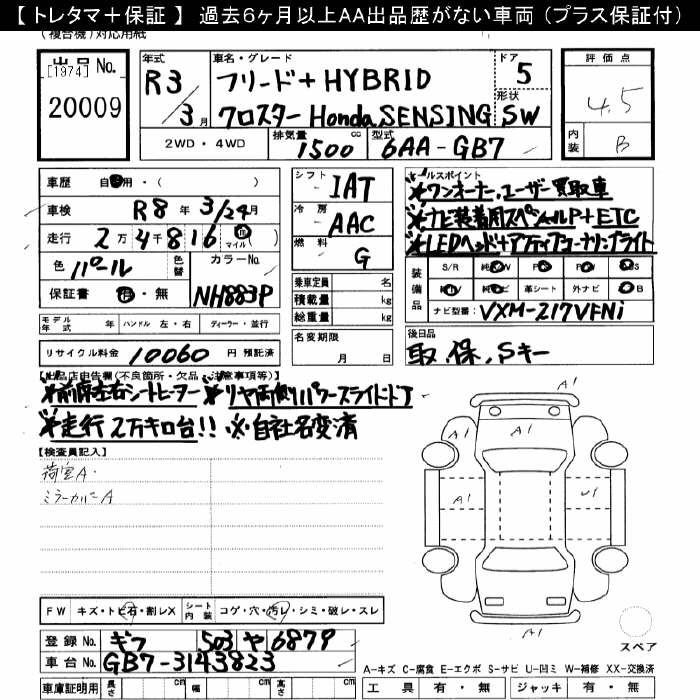 【 トレタマ＋保証 】 過去６ヶ月以上AA出品歴がない車両（プラス保証付）
（複合機）対応用紙
出品 No. [1974]
20009
年式 R3／3月
車名・グレード フリード＋HYBRID
クロスター Honda SENSING
ドア 5
形状 SW
評価点 4.5
内装 B
2WD・4WD 排気量 1500 cc 型式 6AA-GB7
車歴 自家用・（ ）
車検 R8年 3/24月
走行 2万4千816 マイル
色 パール 色替 カラーNo. NH883P
保証書 有・無
シフト IAT
冷房 AAC
燃料 G
乗車定員 名
積載量 kg
総重量 kg
セールスポイント
★ワンオーナー、ユーザー買取車
★ナビ装着用スペシャルP＋ETC
★LEDヘッド＋アクティブコーナリングライト
装備品 S/R 純TV PS PW ABS
純ナビ 純AW 革シート 外ナビ エアB
ナビ型番: VXM-217VFNi
モデル年式 年 ハンドル 左・右 ディーラー・並行
リサイクル料金 10060 円 預託済
名変期限 月 日
後日品
取、保、Sキー
【出品店申告欄(不良箇所・欠品・注意事項等)】
★前席左右シートヒーター ★リヤ両側パワースライドドア
★走行2万キロ台!! ※自社名変済
【検査員記入】
荷室A
ミラーカバーA
A1
A1
A1
A1
U1
A1
FW キズ・トビ石・割レX シート内装 コゲ・穴・汚レ・シミ・破レ・スレ
登録 No. ギフ 503 や 6879
車台 No. GB7-3143823
車庫証明用 長さ cm 幅 cm 高さ cm
スペア
A-キズ C-腐食 E-エクボ S-サビ U-凹ミ W-補修 XX-交換済
工具 有・無 ジャッキ 有・無